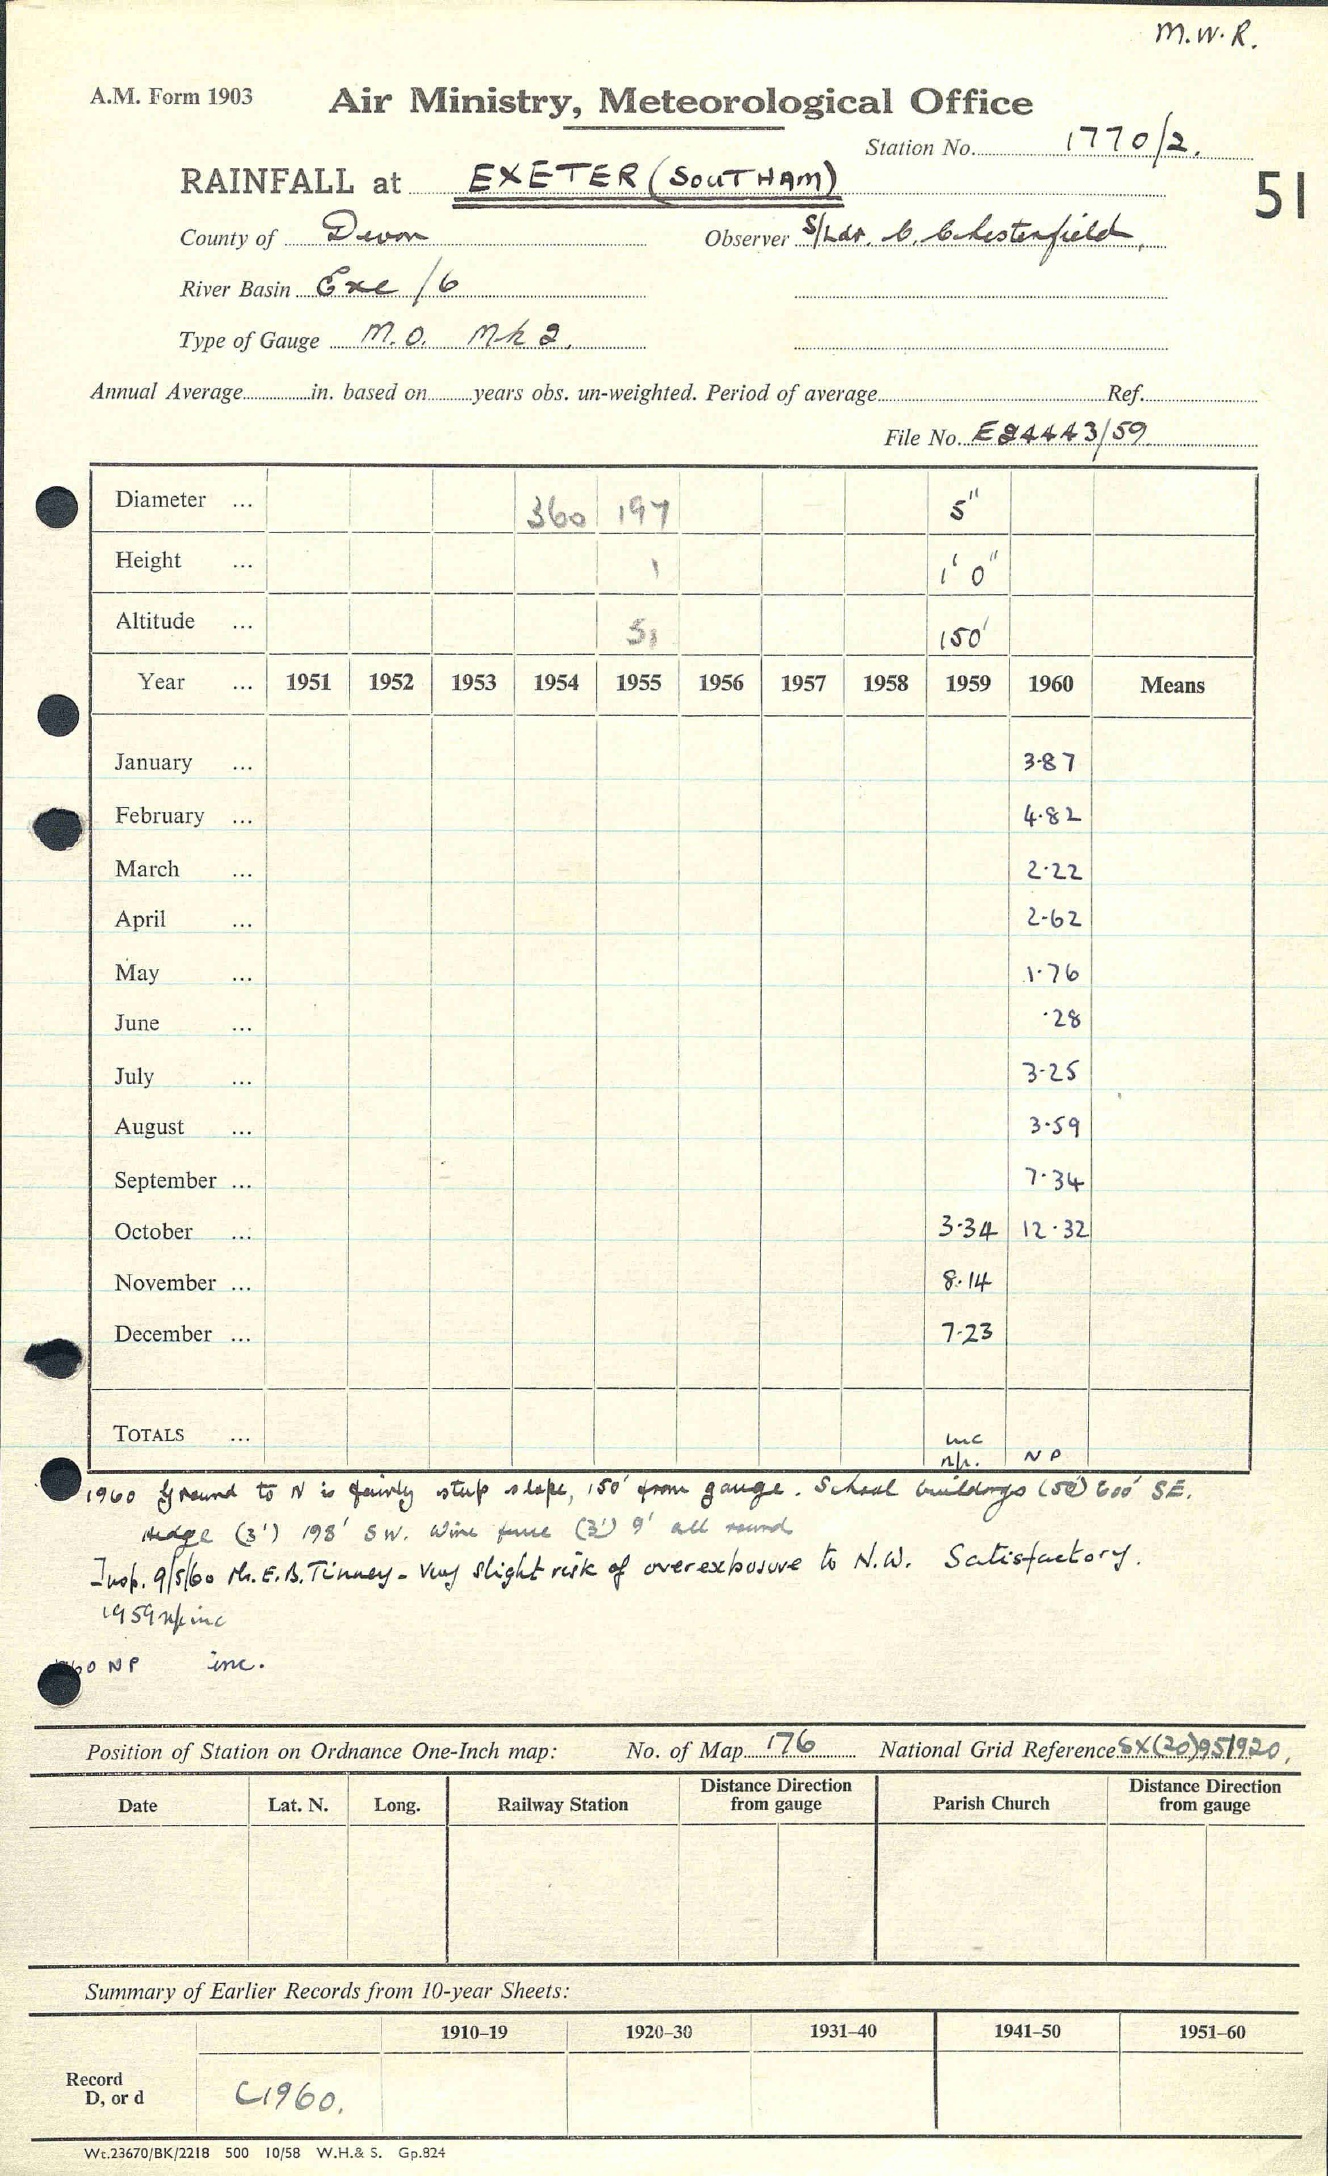 M.W.R.
A.M. Form 1903 Air Ministry, Meteorological Office
Station No. 1770/2.
RAINFALL at EXETER (SOUTHAM)
51
County of Devon Observer S/Ldr. C. Chesterfield,
River Basin Exe /6
Type of Gauge M.O. Mk 2.
Annual Average in. based on years obs. un-weighted. Period of average Ref.
File No. E24443/59
Diameter ... 360 197 5"
Height ... 1 1' 0"
Altitude ... 51 150'
Year ... 1951 1952 1953 1954 1955 1956 1957 1958 1959 1960 Means
January ... 3·87
February ... 4·82
March ... 2·22
April ... 2·62
May ... 1·76
June ... ·28
July ... 3·25
August ... 3·59
September ... 7·34
October ... 3·34 12·32
November ... 8·14
December ... 7·23
TOTALS ... inc n/p. NP
1960 Ground to N is fairly steep slope, 150' from gauge. School buildings (50') 600' SE.
Hedge (3') 198' SW. Wire fence (3') 9' all round
Insp. 9/5/60 Mr. E.B. Tinney - Very slight risk of overexposure to N.W. Satisfactory.
1959 n/p inc
60 NP inc.
Position of Station on Ordnance One-Inch map: No. of Map 176 National Grid Reference SX(20)951920,
Date Lat. N. Long. Railway Station Distance Direction from gauge Parish Church Distance Direction from gauge
Summary of Earlier Records from 10-year Sheets:
1910–19 1920–30 1931–40 1941–50 1951–60
Record
D, or d C1960.
Wt.23670/BK/2218 500 10/58 W.H.& S. Gp.824